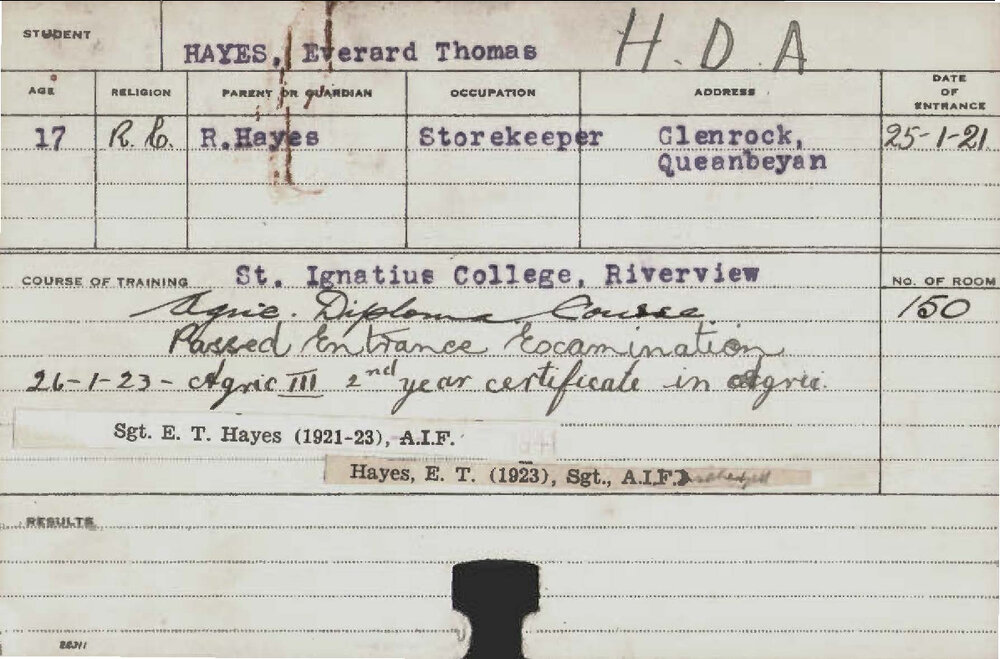 STUDENT HAYES, Everard Thomas H.D.A
AGE RELIGION PARENT OR GUARDIAN OCCUPATION ADDRESS DATE OF ENTRANCE
17 R.C. R.Hayes Storekeeper Clenrock, 25-1-21
Queanbeyan
COURSE OF TRAINING St. Ignatius College, Riverview NO. OF ROOM
Agric. Diploma Course. 150
Passed Entrance Examination
26-1-23 - Agric III 2nd year certificate in Agric.
Sgt. E. T. Hayes (1921-23), A.I.F.
Hayes, E. T. (1923), Sgt., A.I.F.
RESULTS